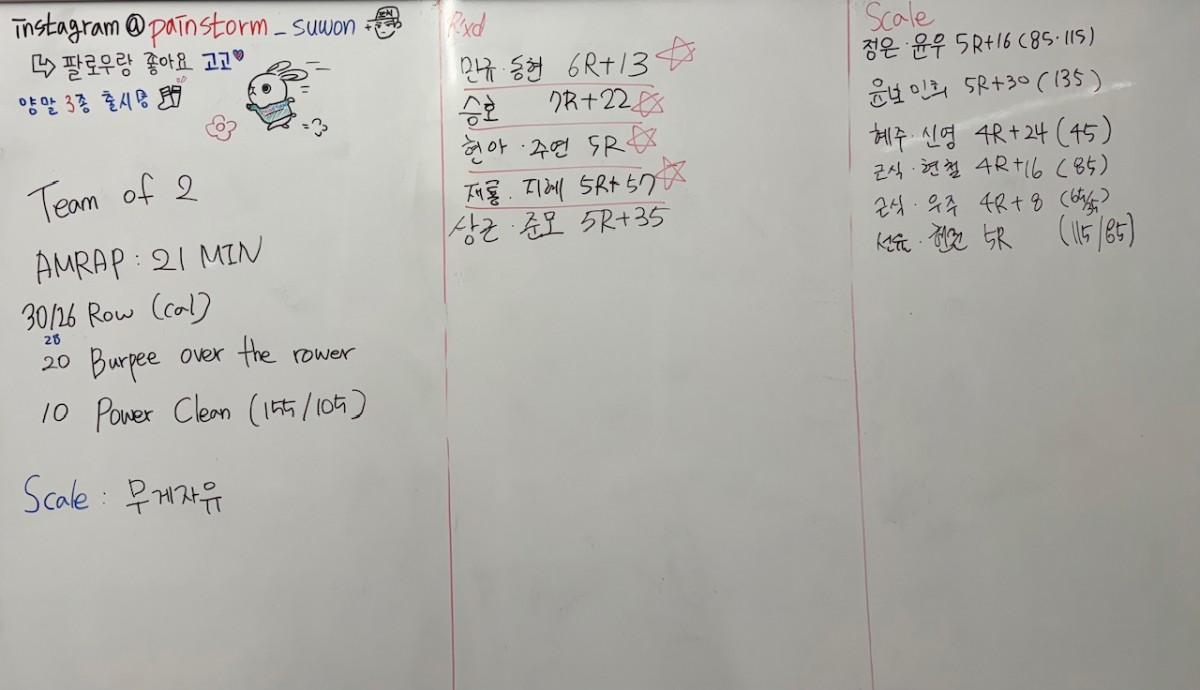 instagram@painstorm_suwon +
팔로우랑 좋아요 고고
양말 3종 출시중
Team of 2
AMRAP : 21 MIN
30/26 Row (cal)
20
20 Burpee over the rower
10 Power Clean (155/105)
Scale : 무게자유
Rxd
민규·동현 6R+13
승호 7R+22
현아·주연 5R
재룡·지혜 5R+57
상근·준모 5R+35
Scale
정은·윤우 5R+16 (85·115)
5R+30 (135)
혜주·신영 4R+24 (45)
근식·현철 4R+16 (85)
근식·우주 4R+8
5R (115/85)